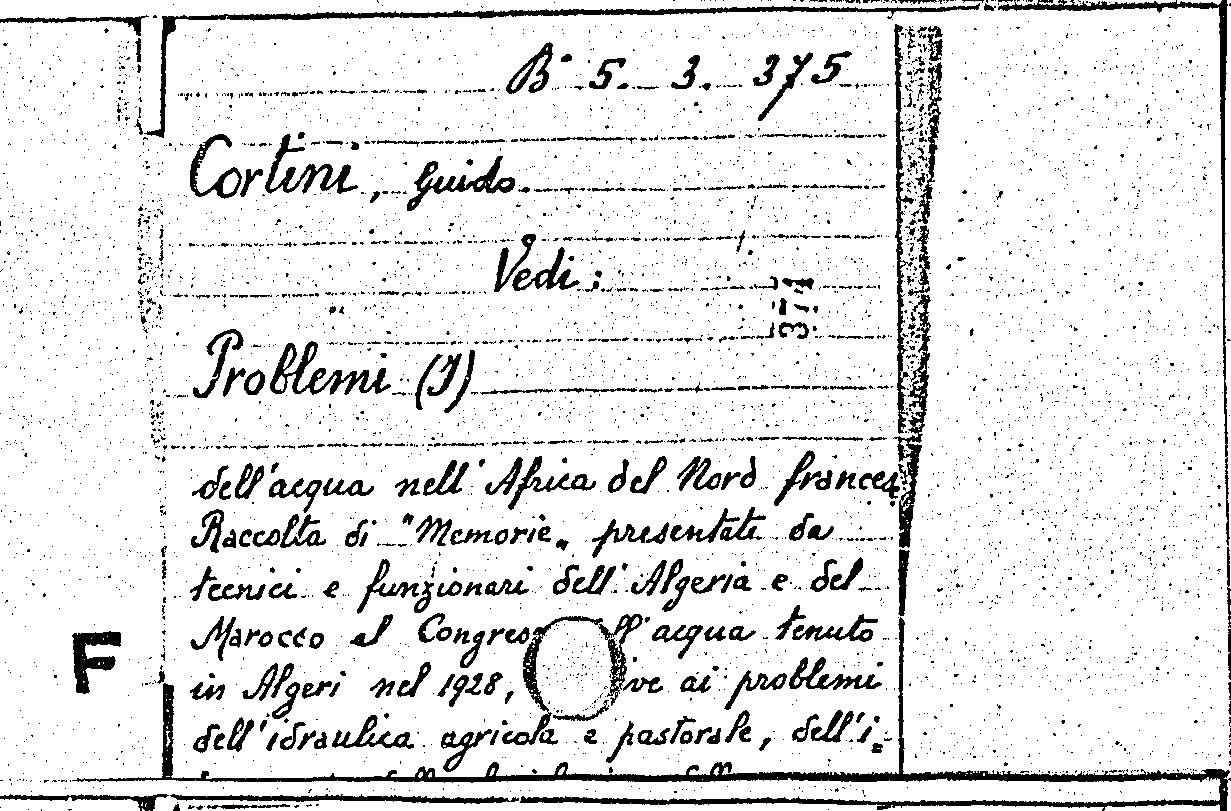 B° 5. 3. 375
Cortini, Guido.
Vedi:
374
Problemi (I)
dell'acqua nell'Africa del Nord frances
Raccolta di "Memorie„ presentate da
tecnici e funzionari dell'Algeria e del
Marocco al Congres ll'acqua tenuto
in Algeri nel 1928, ive ai problemi
dell'idraulica agricola e pastorale, dell'i=
F